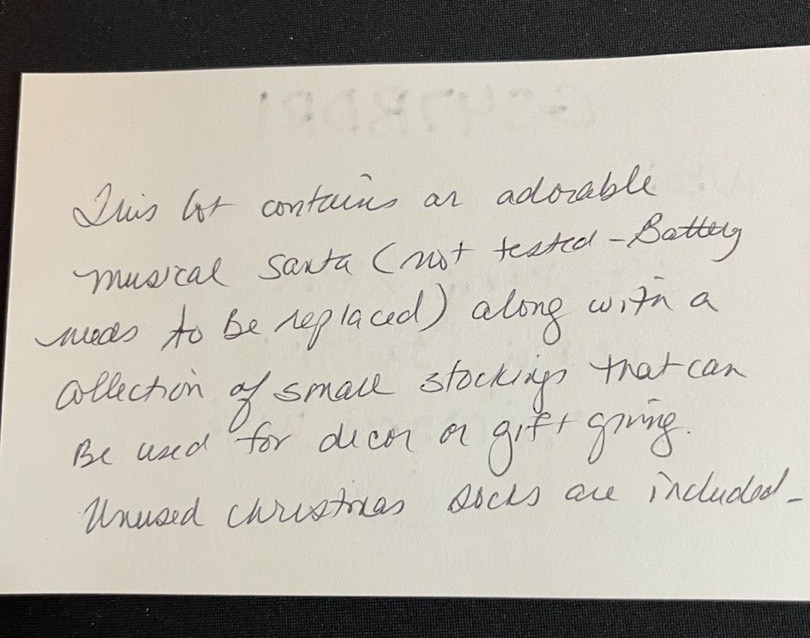 This lot contains an adorable
musical Santa (not tested - Battery
needs to be replaced) along with a
collection of small stockings that can
Be used for decor or gift giving.
Unused Christmas socks are included -